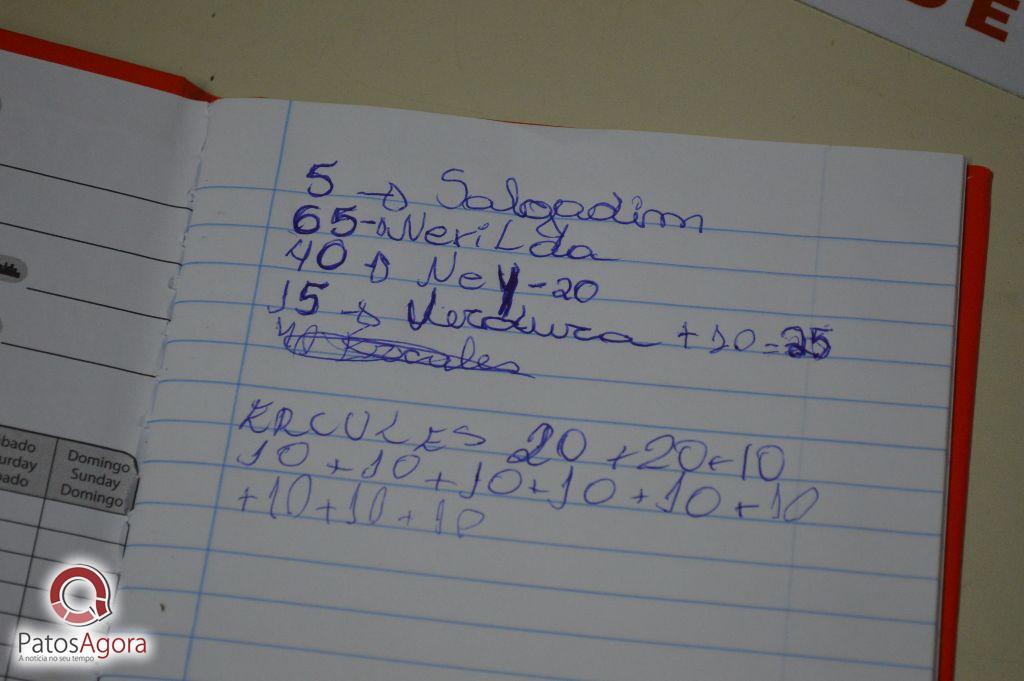 DE
5 → Salgadim
65 → Nerilda
40 → Ney - 20
15 → Verdura + 10 = 25
ERCULES 20 + 20 + 10
10 + 10 + 10 + 10 + 10 + 10
+ 10 + 10 + 10
Domingo
Sunday
Domingo
bado
urday
ado
PatosAgora
A notícia no seu tempo